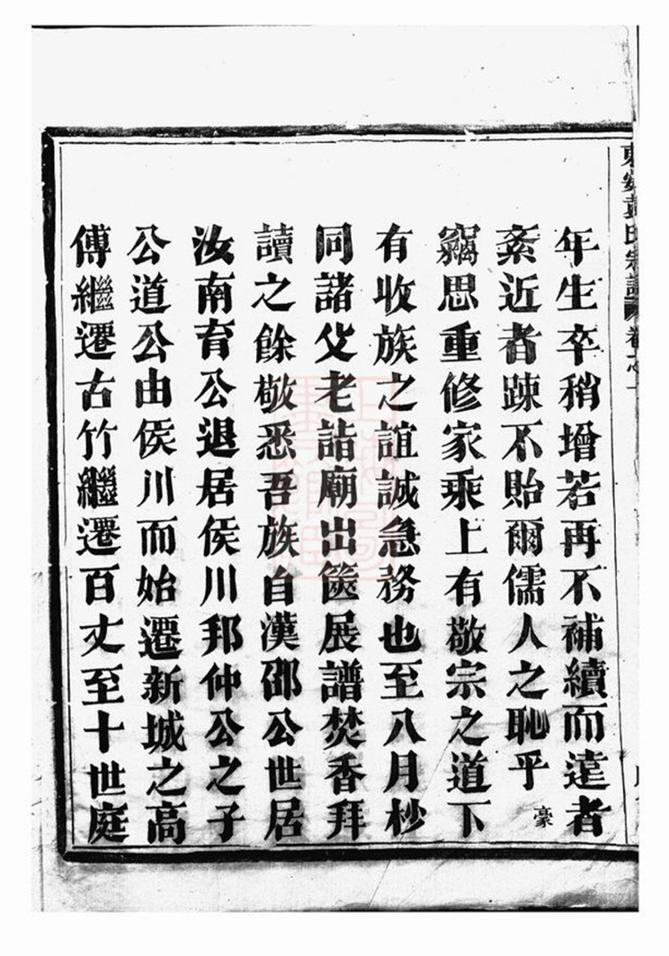 年生卒稍增若再不補續而遠者
紊近者疎不貽爾儒人之恥乎豪
竊思重修家乘上有敬宗之道下
有收族之誼誠急務也至八月杪
同諸父老詣廟出篋展譜焚香拜
讀之餘敬悉吾族自漢邵公世居
汝南育公退居侯川邦仲公之子
公道公由侯川而始遷新城之高
傅繼遷古竹繼遷百丈至十世庭